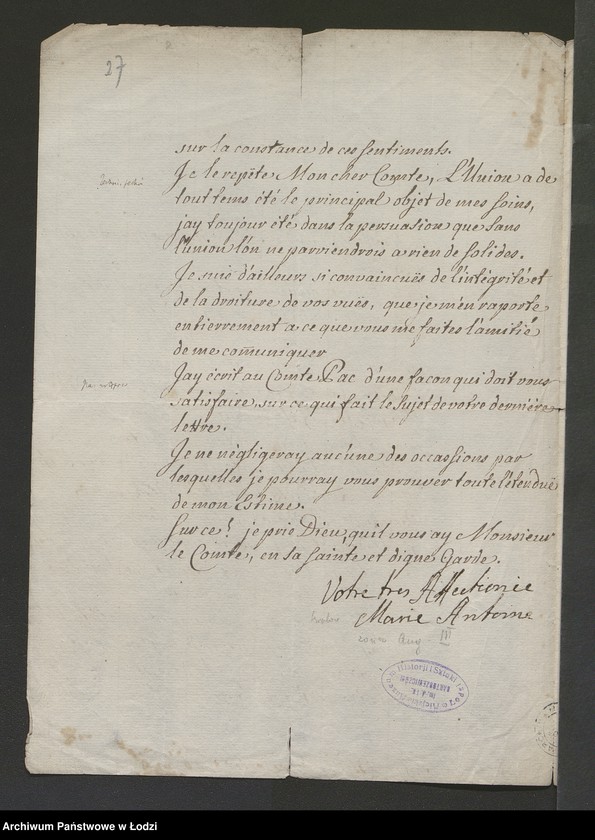 27
sur la constance de ces sentiments.
Je le repète Mon cher Comte, L'Union a de
tout tems été le principal objet de mes soins,
jay toujour été dans la persuasion que sans
l'union l'on ne parviendrois a rien de solides.
Je suie d'ailleurs si convaincuës de l'intégrité et
de la droiture de vos vuës, que je m'en raporte
entierrement a ce que vous me faites l'amitié
de me communiquer
Jay écrit au Comte Pac d'une facon qui doit vous
satisfaire, sur ce qui fait le sujet de votre derniére
lettre.
Je ne négligeray aucune des occassions par
lesquelles je pourray vous prouver toute l'étenduë
de mon Estime.
Sur ce! je prie Dieu, quil vous ay Monsieur
le Comte, en sa sainte et digne Garde.
Votre tres Affectionée
Marie Antoine
Aug III
Historji i Sztuki
Archiwum Państwowe w Łodzi